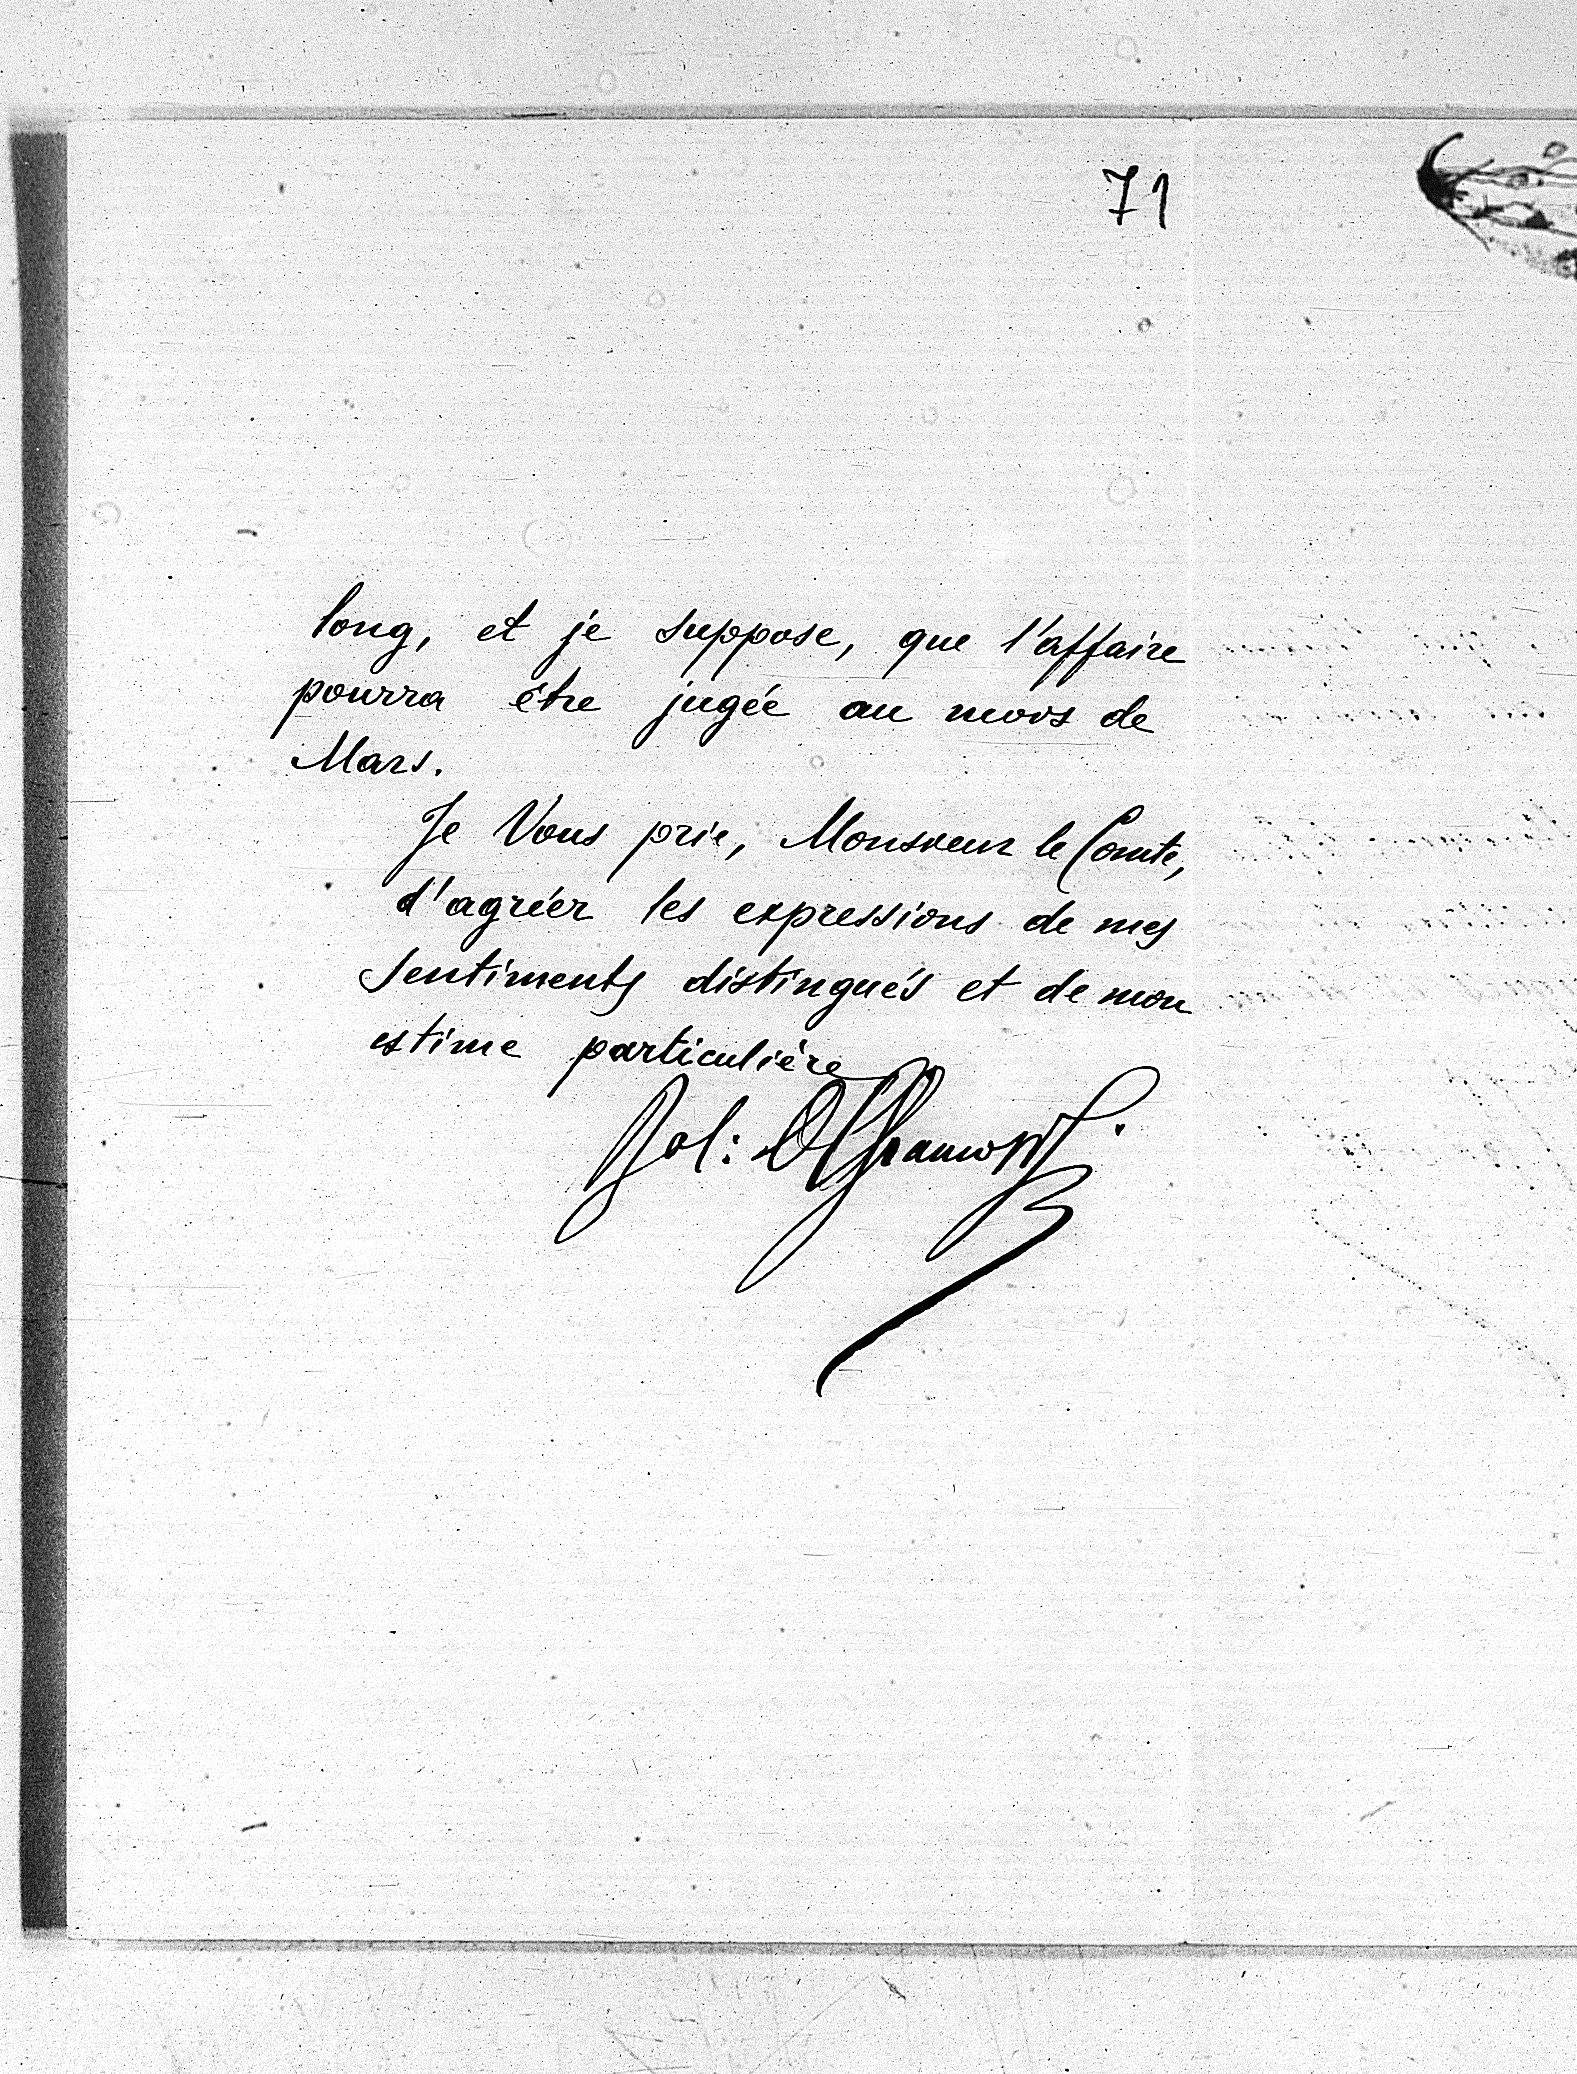 71
long, et je suppose, que l'affaire
pourra être jugée au mois de
Mars.
Je Vous prie, Monsieur le Comte,
d'agréer les expressions de mes
sentiments distingués et de mon
estime particulière